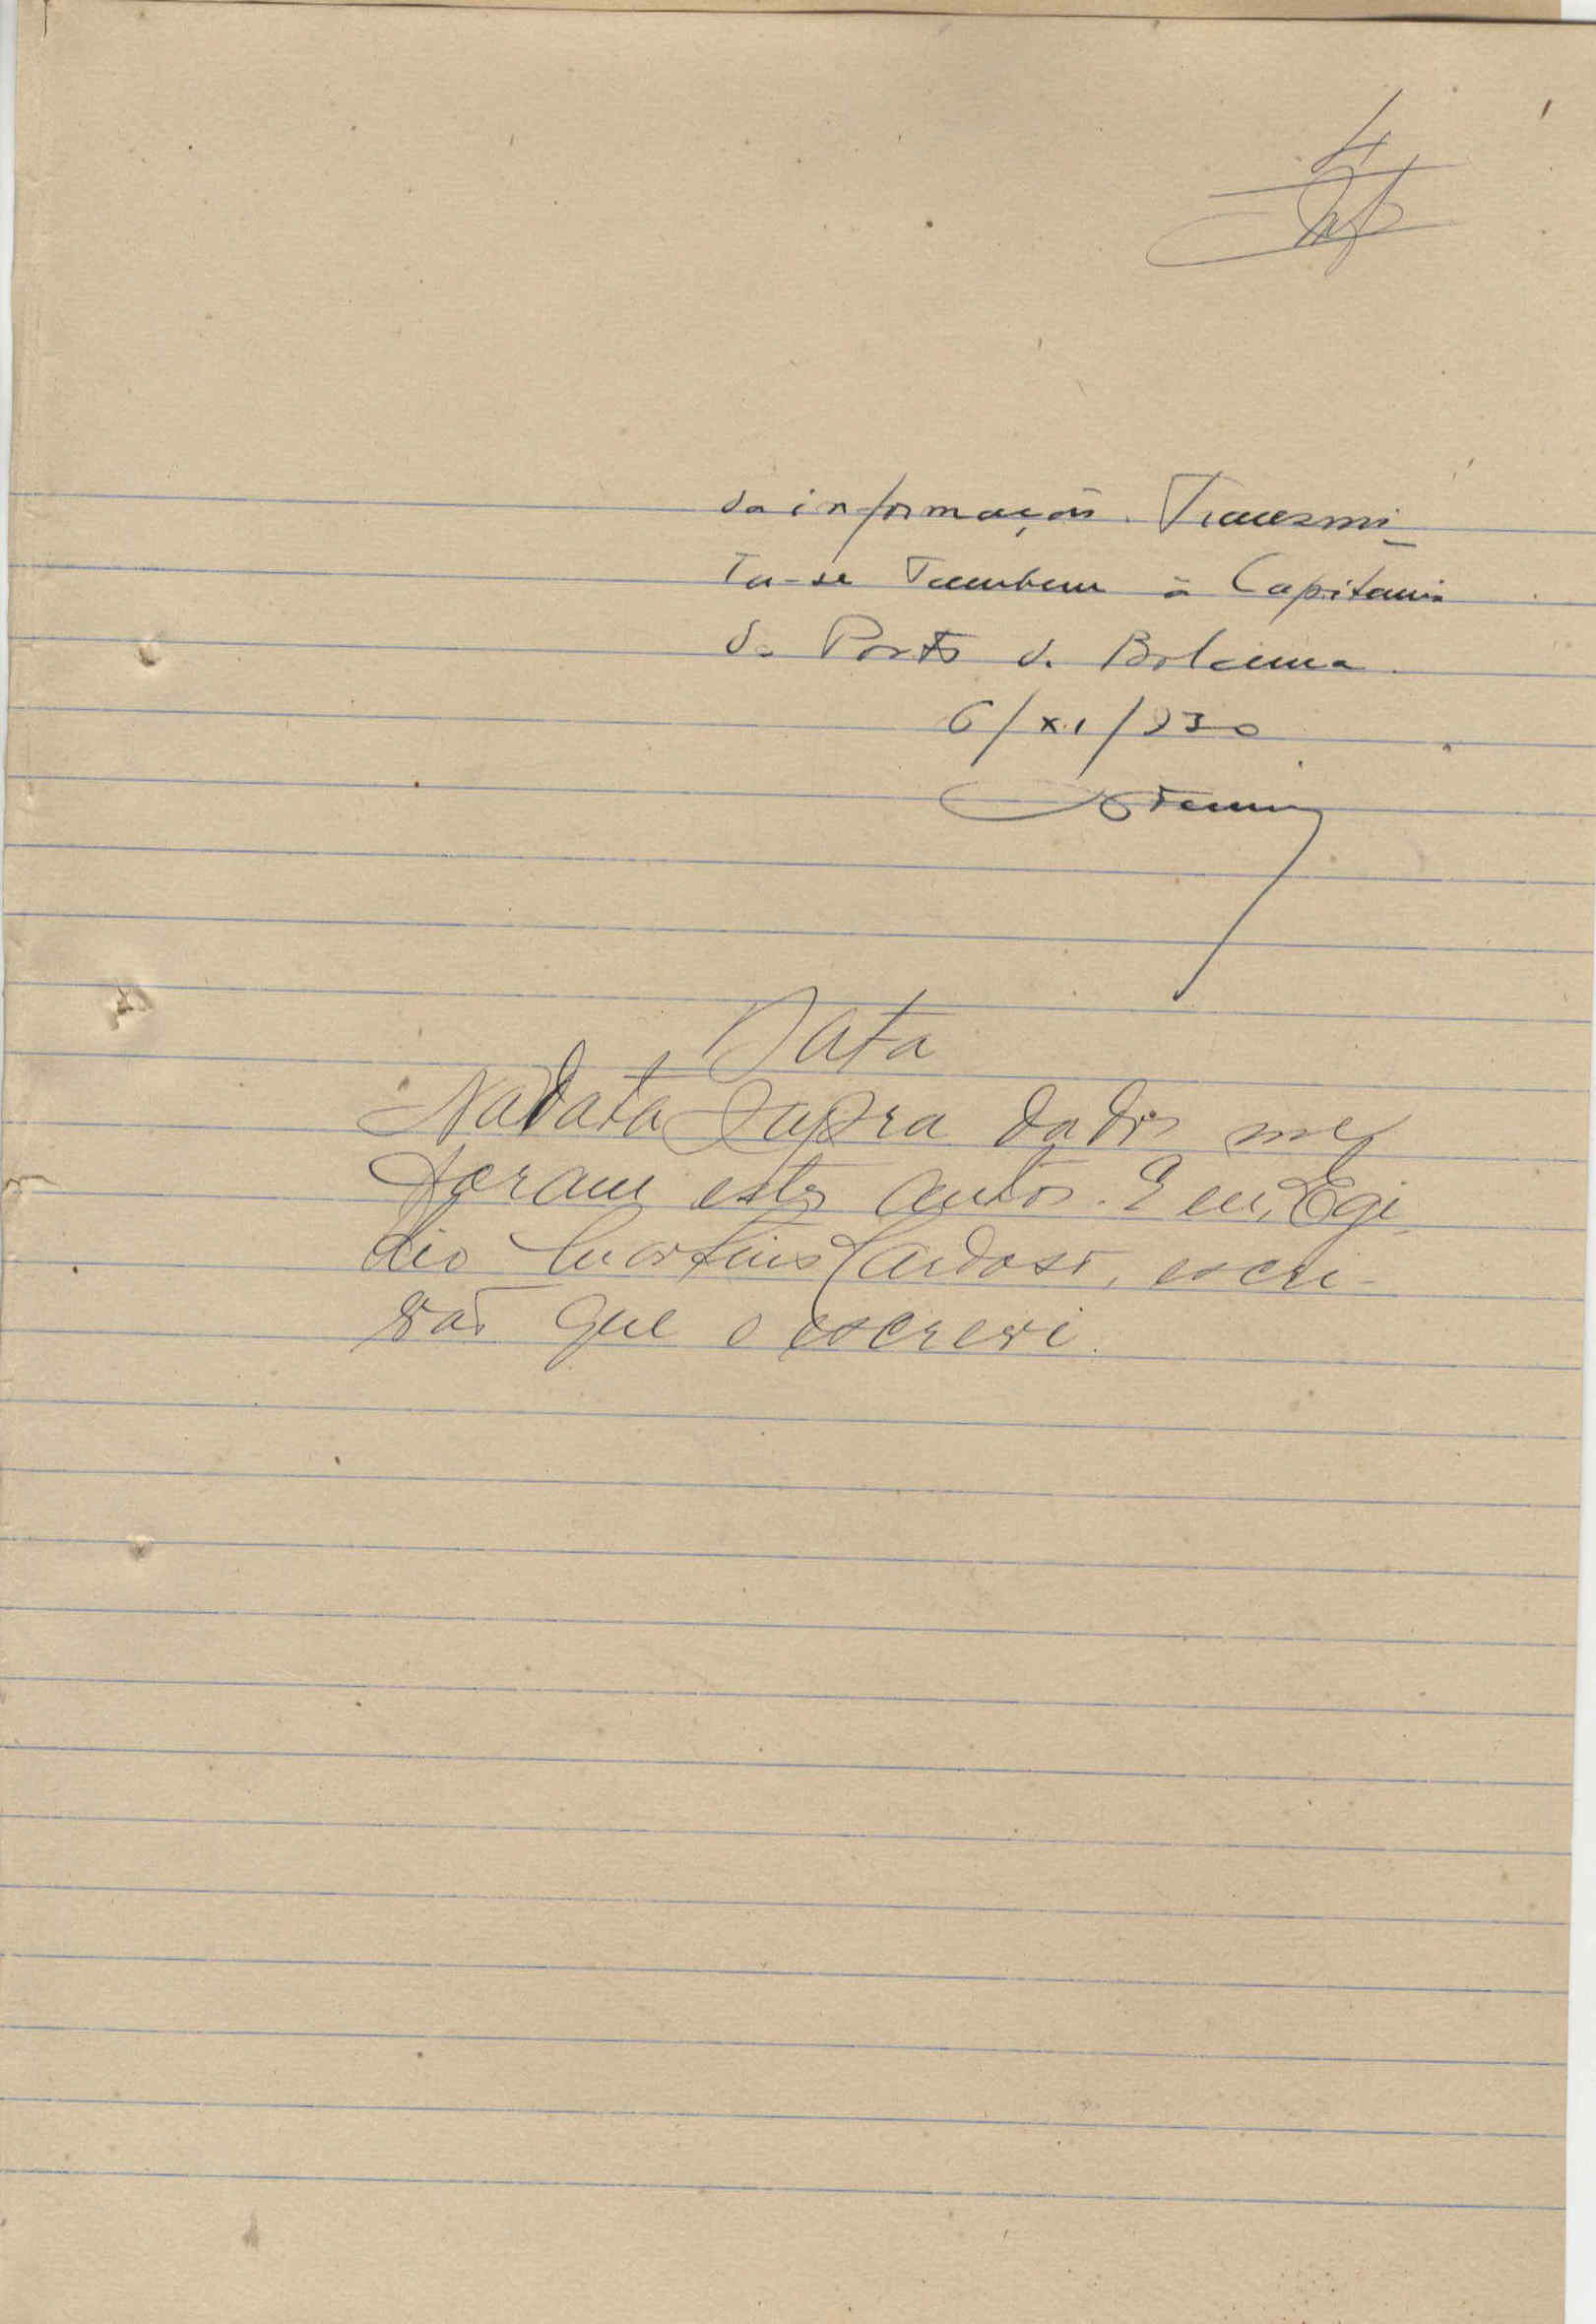 4
da informação. Transmi-
ta-se Tambem à Capitania
do Porto de Bolama.
6/XI/930
Data
Na data supra dados me
foram estes autos. E eu, Egi-
dio Martins Cardoso, escri-
vão que o escrevi.